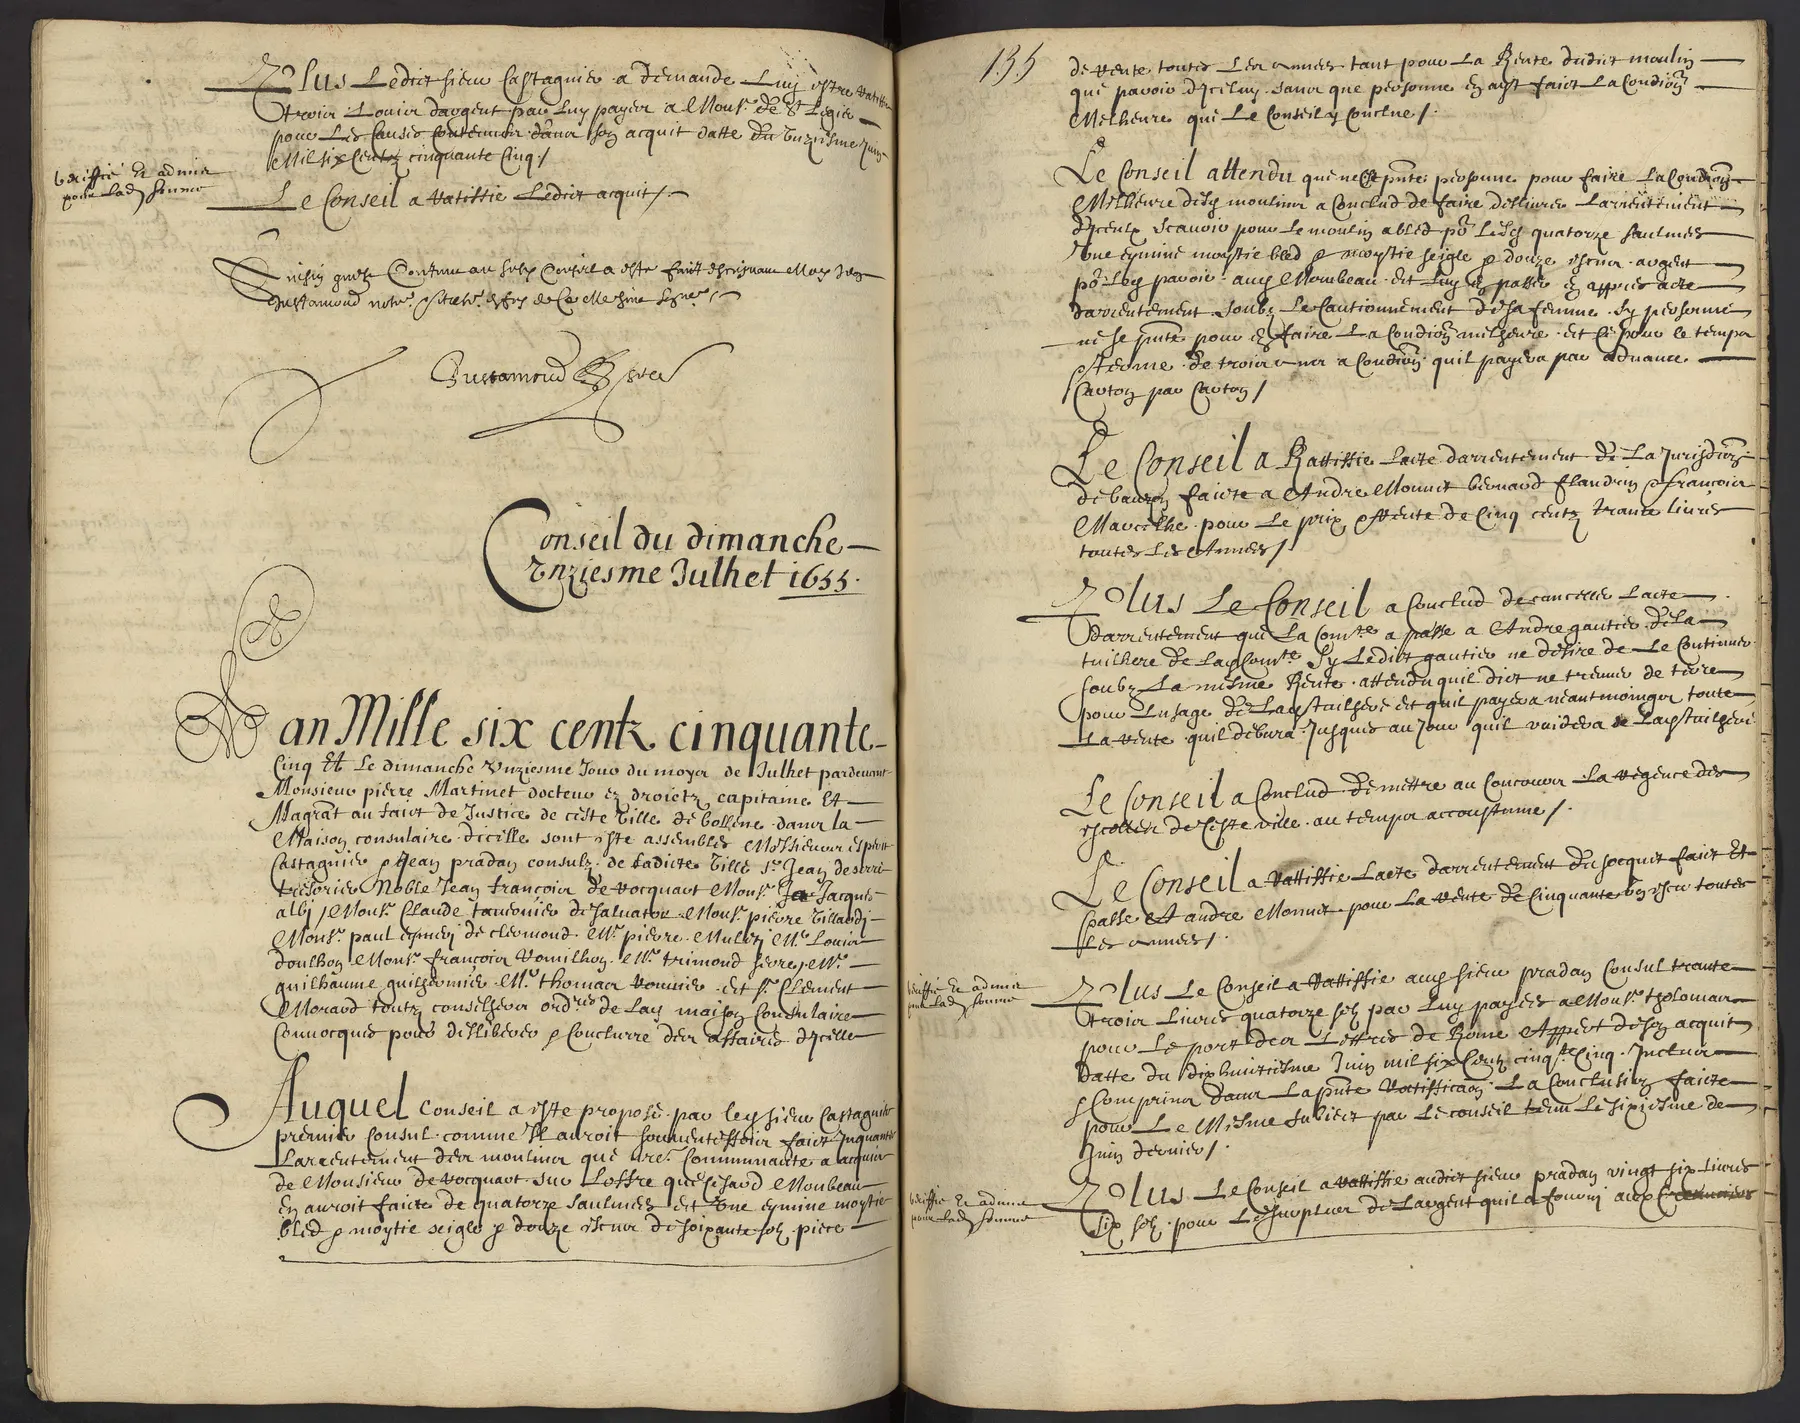 Plus Ledict sieur Castagnier a demandé Luy estre ratiffié
trois Louis dargent par Luy payer a Mons.r de S.t Legie
pour Les causes contenues dans son acquit datte du unziesme Juin
Mil six Centz cinquante Cinq /
veriffié Et admis
pour lad somme
Le Conseil a Ratiffié Ledict acquit /.
Ainsin que dessus Contenu au susd Conseil a esté faict escrivant Moy
Gustamond not.re secret.re
Gustamond
Conseil du dimanche
Unziesme Julhet 1655.
L'an Mille six centz cinquante
Cinq Et Le dimanche Unziesme Jour du moys de Julhet pardevant
Monsieur pierre Martinet docteur ez droictz capitaine Et
Magrat au faict de Justice de ceste Ville de bollene dans la
Maison consulaire dicelle sont esté assemblés Messieurs esprit
Castagnier & Jean pradan consulz de ladicte Ville s.r Jean
tresorier Noble Jean francois de Rocquart Mons.r Jacques
albi Mons.r Claude tavernier de salvator Mons.r pierre Villardi
Mons.r paul de clermond M.e pierre M.e Louis
doulhon Mons.r francois Romilhon M.e trimond M.e
guilhaume guilhermier M.e thomas et s.r Clement
Morard toutz conselhers ord.res de Lad maison Consulaire
Convocqués pour dellibérer & Conclurre des affaires dycelle
Auquel conseil a esté proposé par led sieur Castagnier
premier Consul comme Il auroit souventesfois faict Inquanter
Larrentement des moulins que n.re Communauté a acquis
de Monsieur de Rocquart sur Loffre que Monbeau
En auroit faicte de quatorze saulmées et Une eymine moytié
bled & moytié seigle & douze escus de soixante solz piece
135
de rente toutes Les années tant pour La Rente dudict moulin
que pavoir dycelluy sans que personne en ayt faict La Condion
Melheure que Le Conseil y Conclue /.
Le Conseil attendu que ne se pnte personne pour faire La Condion
Melheure desd moulins a Conclud de faire deslivrer Larrentement
dyceux scavoir pour le moulin a bled po.r Lesd quatorze saulmées
Une eymine moytié bled & moytié seigle & douze escus argent
po.r led pavoir aud Monbeau et Luy en passer en appres acte
darrentement soubz Le Cautionnement de sa femme sy personne
ne se pnte pour en faire La Condion melheure et ce pour le temps
& terme de trois ans a Condion quil payera par advance
Carton par Carton /
Le Conseil a Rattiffié Lacte darrentement de La Jurisdion
de bauzon faicte a Andre Monnet bernard flandrin & francois
Marcelhe pour Le prix & Rente de Cinq centz trante livres
toutes Les Années /
Plus Le Conseil a Conclud de canceller Lacte
darrentement que La Com.té a passé a Andre gautier de La
tuilhere de Lad Com.té Sy Ledict gautier ne désire de Le Continuer
soubz La mesme Rente attendu quil dict ne treuver de terre
pour Lusage de Lad tuilhere et quil payera neantmoingz toute
La rente quil debvra Jusques au Jour quil vuidera de Lad tuilhere
Le Conseil a Conclud de mettre au Concours La régence des
escolles de Ceste ville au temps accoustumé /.
Le Conseil a Rattiffié Lacte darrentement du socquet faict Et
passé a andre Monnet pour La rente de Cinquante un escu toutes
Les années /.
veriffié Et admis
pour lad somme
Plus Le Conseil a Rattiffié aud sieur pradan Consul trante
trois Livres quatorze solz par Luy payées a Mons.r tholomas
pour Le port des Lettres de Rome Appert de son acquit
datte du dixhuictiesme Juin mil six Centz cinq.te Cinq Inclus
& Comprins dans La pnte Rattifficaon La Conclusion faicte
pour Le Mesme subiect par Le conseil tenu Le sixiesme de
Juin dernier /.
veriffié Et admis
pour lad somme
Plus Le Conseil a Rattiffié audict sieur pradan vingt six Livres
six solz pour Le surplus de Largent quil a fourni aux